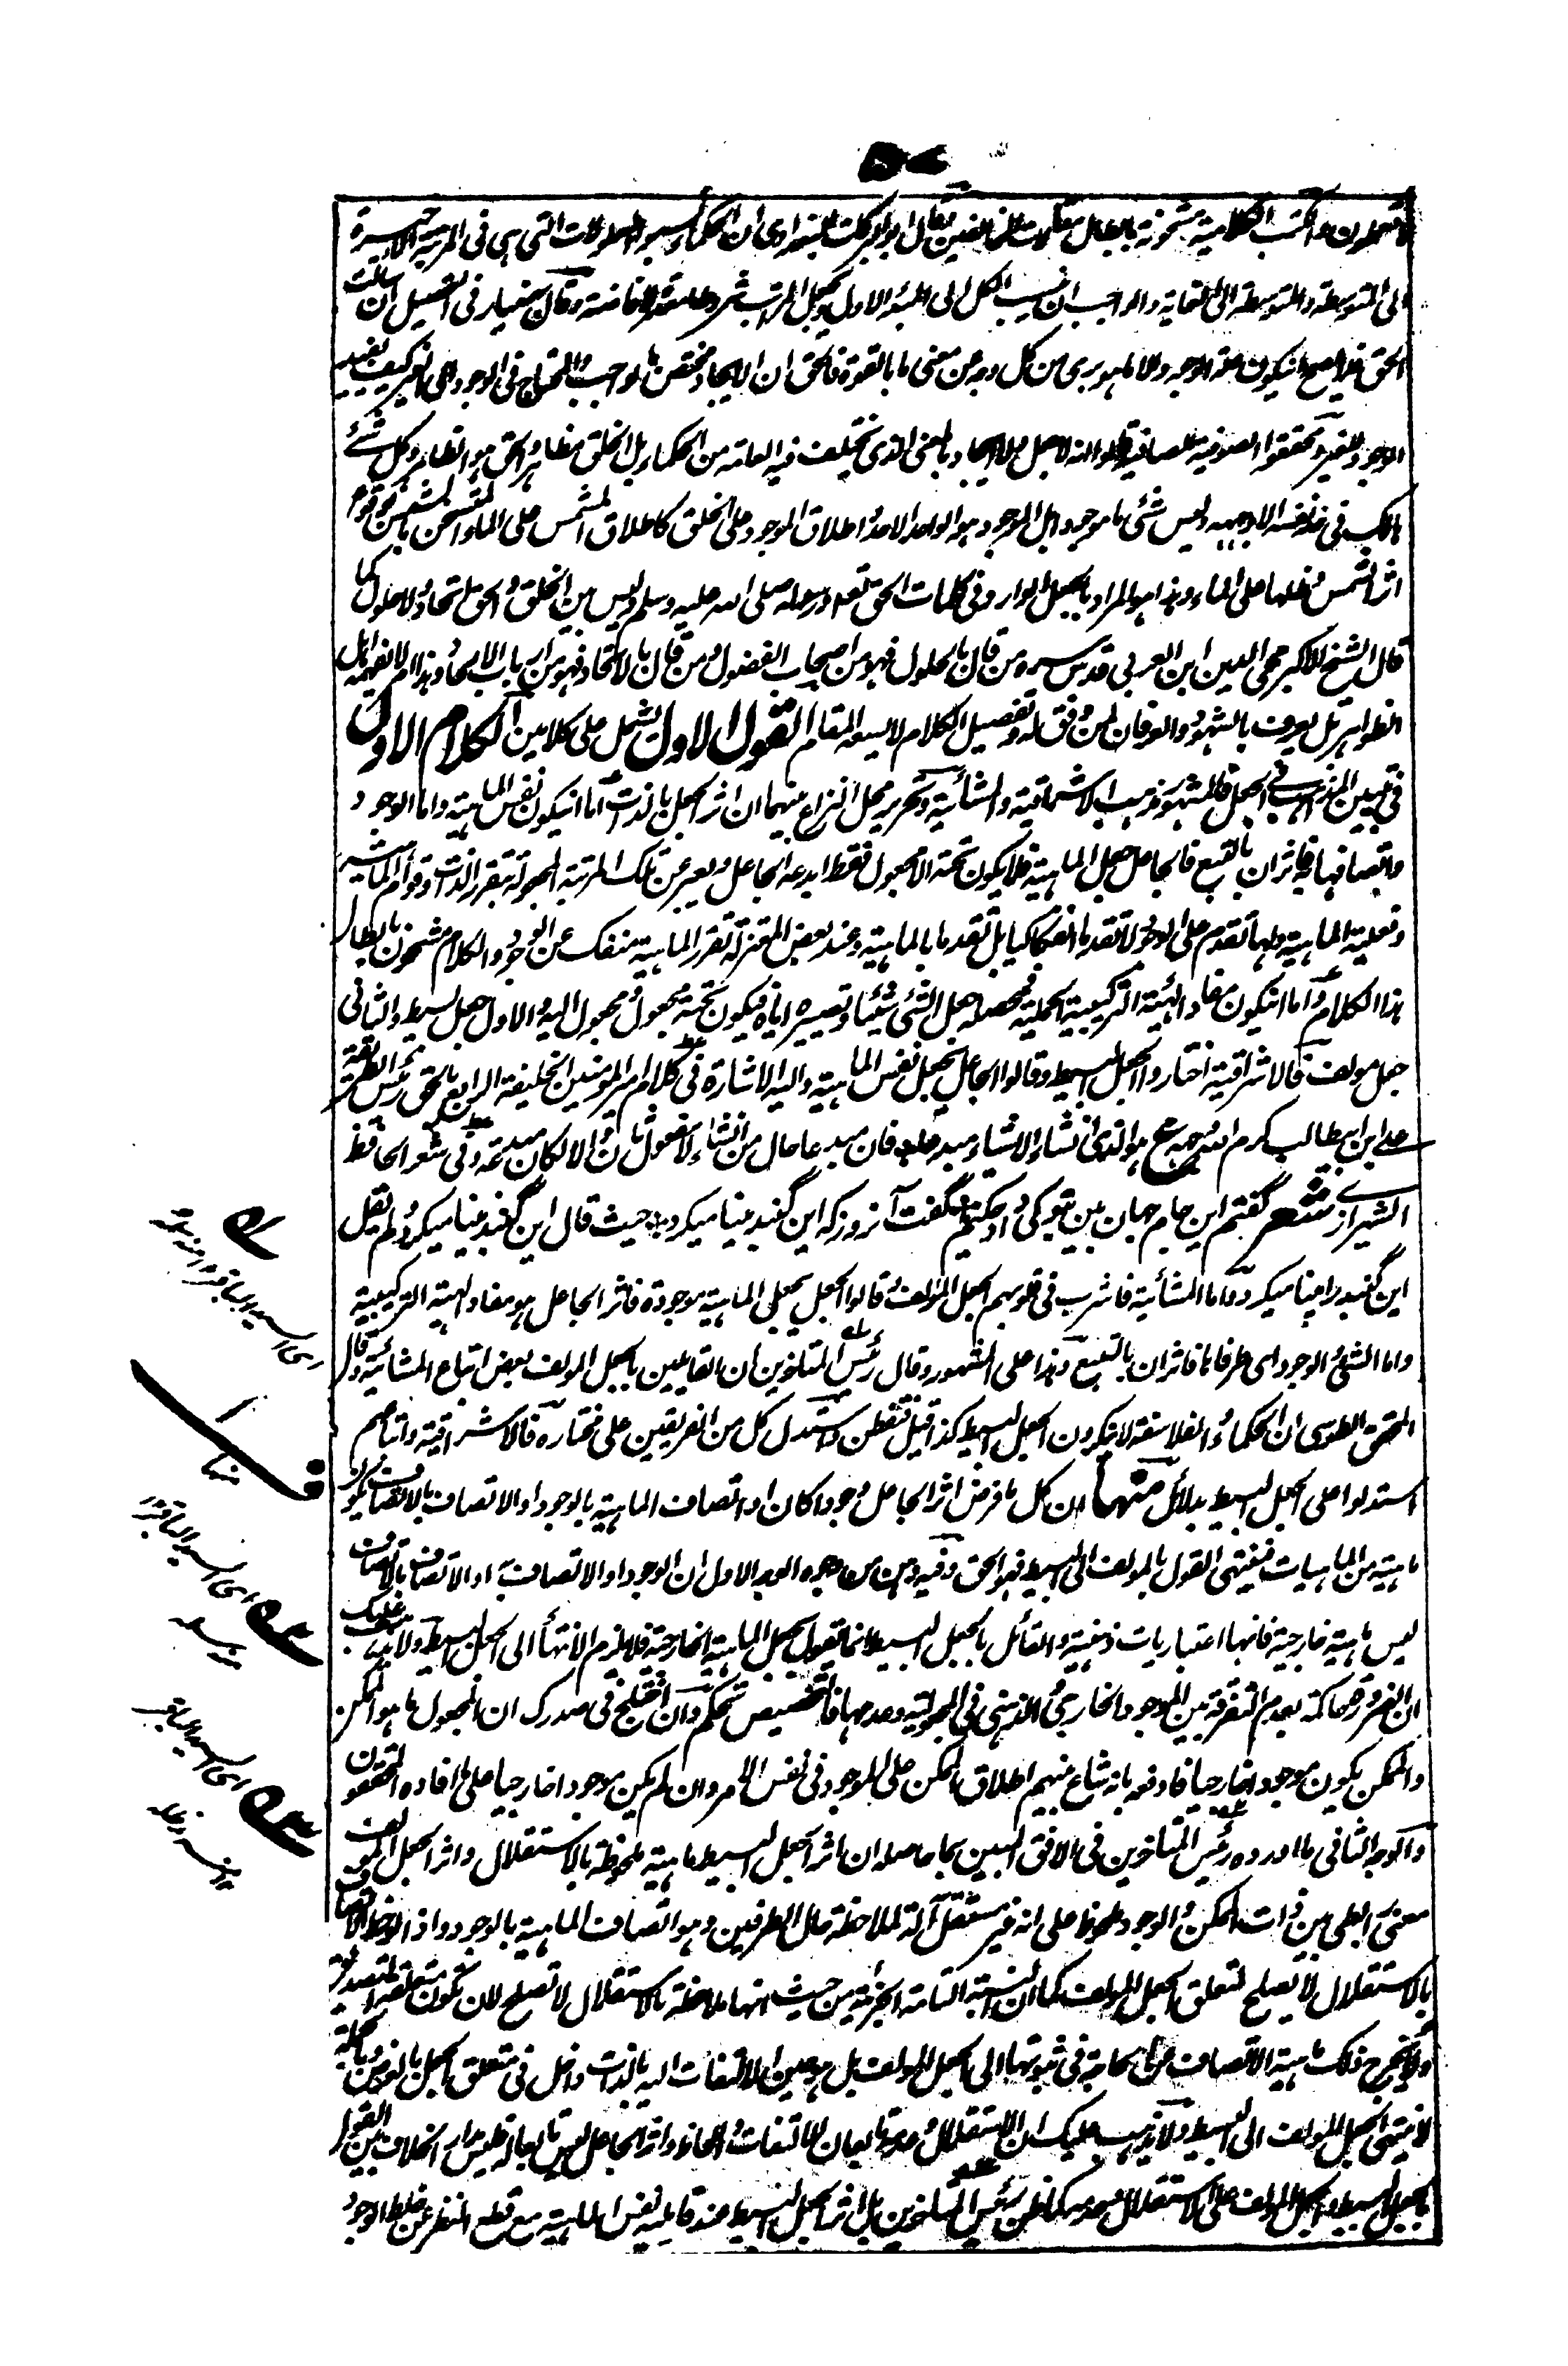 والكتب الكلامية مشحونة بابطال مقالات المخالفين قال ابو البركات البغدادى ان الحكماء نسبوا المعلولات التى هى فى المرتبة الاخيرة
الى المتوسطة والمتوسطة الى العالية والواجب ان ينسب الكل الى المبدء الاول ويجعل المراتب شروطا معدة لافاضته وقال بهمنيار فى التحصيل ان سالت
الحق فلا يصح ان يكون علة الوجود الا ما هو برى من كل وجه عن معنى ما بالقوة فالحق ان الايجاد مختص بالواجب والمحتاج فى الوجود الى الغير كيف يفيد
الوجود للغير ومحققوا الصوفية الصافية قالوا انه لا جعل ولا ايجاد بالمعنى الذى تختلف فيه العامة من الحكماء بل الخلق مظاهر والحق هو الظاهر وكل شئ
هالك فى حد نفسه الا وجهه وليس شئى ما موجودا بل الموجود هو الواحد الاحد واطلاق الموجود على الخلق كاطلاق المشمس على الماء المتسخن بالشمس من وقوع
اثر الشمس وظلها على الماء وهذا هو المراد بالجعل الوارد فى كلمات الحق تعالى ورسوله صلى الله عليه وسلم وليس بين الخلق والحق اتحاد ولا حلول كما
قال الشيخ الاكبر محى الدين ابن العربى قدس سره من قال بالحلول فهو من اصحاب الفضول ومن قال بالاتحاد فهو من ارباب الالحاد وهذا امر لا يفهمه اهل
الظواهر بل يعرف بالشهود والعرفان لمن وفق له وتفصيل الكلام لا يسعه المقام القول الاول يشتمل على كلامين الكلام الاول
فى تبيين المذاهب فى الجعل فالمشهور مذهب الاشراقية والمشائية وتحرير محل النزاع بينهما ان اثر الجعل بالذات اما ان يكون نفس الماهية واما الوجود
واتصافها به فاثران بالتبع فالجاعل جعل الماهية فلا يكون تحته الا مجعول فقط ابدعه الجاعل ويعبر عن تلك المرتبة المجعولة بتقرر الذات وقوام الماهية
وفعلية الماهية ولها تقدم على الوجود لا تقدما انفكاكيا بل تقدما بالماهية وعند بعض المعتزلة تقرر الماهية منفك عن الوجود والكلام مشحون بابطال
هذا الكلام واما ان يكون مفاد الهيئة التركيبية الحملية فمحصله جعل الشئى شيئا وتصييره اياه فيكون تحته مجعول ومجعول اليه والاول جعل بسيط والثانى
جعل مولف فالاشراقية اختاروا الجعل البسيط وقالوا الجاعل يجعل نفس الماهية واليه الاشارة فى كلام امير المومنين الخليفة الرابع بالحق رئيس الطريقة
على ابن ابيطالب كرم الله وجهه ع هو الذى انشاء الاشياء مبدعها فان مبدعها حال من انشاء لا مفعول ثان والا لكان مبدعة وفى شعر الحافظ
الشيرازے شعر گفتم این جام جهان بین بتو کی داد حکیم * گفت آنروز که این گنبد مینا میکرد * حيث قال این گنبد مینا میکرد ولم يقل
این گنبد را مینا میکرد واما المشائية فاشرب فى قلوبهم الجعل المولف وقالوا الجعل يجعل الماهية موجودة فاثر الجاعل هو مفاد الهيئة التركيبية
واما الشئى والوجود اى طرفاها فاثران بالتبع وهذا على المشهور وقال رئيس المتاخرين ان القايلين بالجعل المولف بعض اتباع المشائية وقال
المحقق الطوسى ان الحكماء والفلاسفة لا ينكرون الجعل البسيط كذا قيل فتفطن واستدل كل من الفريقين على مختاره فالاشراقية واتباعهم
استدلوا على الجعل البسيط بدلائل منها ان كل ما فرض اثر الجاعل وجودا كان او اتصاف الماهية بالوجود او الاتصاف بالاتصاف فهو
ماهية من الماهيات فينتهى القول بالمولف الى البسيط فهو الحق وفيه وهن من وجوه الوجه الاول ان الوجود او الاتصاف به او الاتصاف بالاتصاف
ليس ماهية خارجية فانها اعتباريات ذهنية والقائل بالجعل البسيط انما يقول بجعل الماهية الخارجية فلا يلزم الانتهاء الى الجعل البسيط ولا يذهب عليك
ان الضرورة حاكمة بعدم التفرقة بين الموجود الخارجى والذهنى فى المجعولية وعدمها فالتخصيص تحكم وان اختلج فى صدرك ان المجعول ما هو الممكن
والممكن يكون موجودا خارجيا فادفعه بانه شاع بينهم اطلاق الممكن على الموجود فى نفس الامر وان لم يكن موجودا خارجيا على ما افاده المحققون
والوجه الثانى ما اورده رئيس المتاخرين فى الافق المبين بما حاصله ان اثر الجعل البسيط ماهية ملحوظة بالاستقلال واثر الجعل المولف
معنى رابطى بين ذات الممكن والوجود ملحوظ على انه غير مستقل آلة لملاحظة حال الطرفين وهو اتصاف الماهية بالوجود واذا لوحظ الاتصاف
بالاستقلال لا يصلح لتعلق الجعل المولف كما ان النسبة التامة الخبرية من حيث انها ملاحظة بالاستقلال لا تصلح لان تكون متعلقة التصديق
ولا يخرج ذلك ماهية الاتصاف عن الحاجة فى ثبوتها الى الجعل المولف بل هو حين الالتفات اليه بالذات داخل فى متعلق الجعل بالعرض وبالجملة
لا ينتهى الجعل المولف الى البسيط ولا يذهب عليك ان الاستقلال وعدمه تابعان للالتفات واللحاظ واثر الجاعل ليس تابعا له فليس مدار الخلاف بين القول
بالجعل البسيط والجعل المولف على الاستقلال وعدمه كما ظن رئيس المتاخرين بل اثر الجعل البسيط عند قايليه نفس الماهية مع قطع النظر عن خلط الوجود
اى السيد الباقر
منه
اى السيد الباقر
اى السيد الباقر